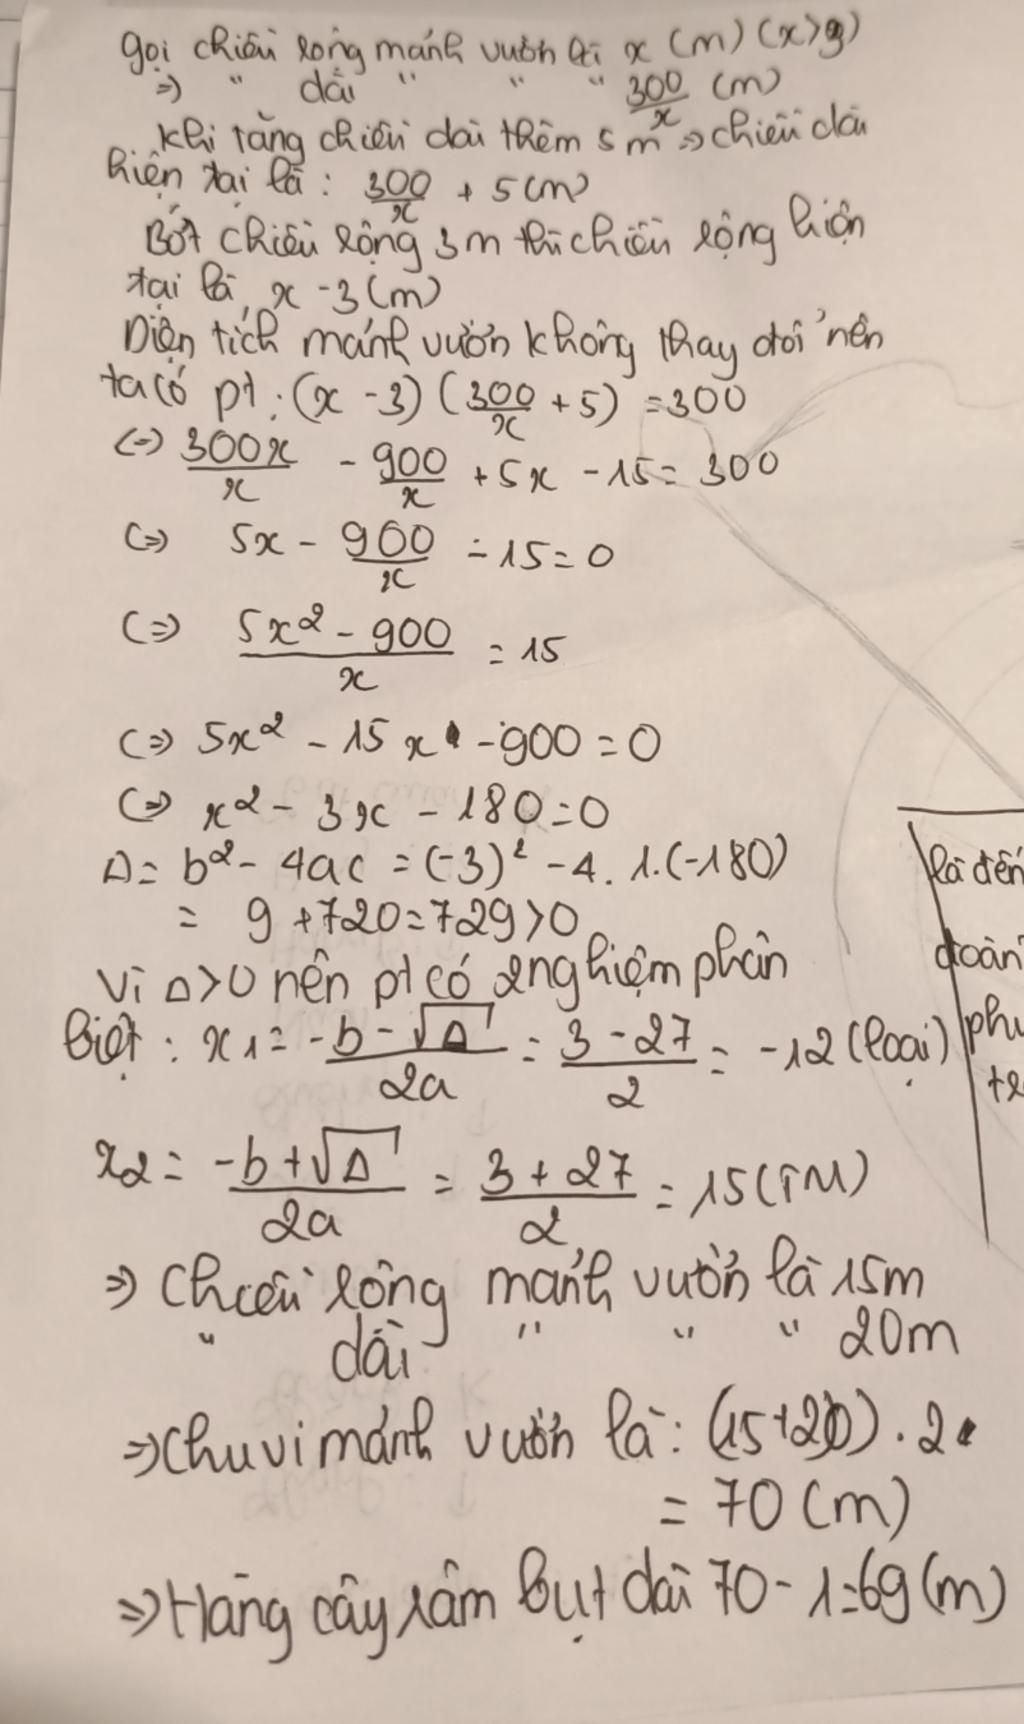 Gọi chiều rộng mảnh vườn là x (m) (x>3)
=> " dài " " " 300/x (m)
Khi tăng chiều dài thêm 5 m => chiều dài
hiện tại là : 300/x + 5 (m)
Bớt chiều rộng 3 m thì chiều rộng hiện
tại là x - 3 (m)
Diện tích mảnh vườn không thay đổi nên
ta có pt : (x - 3) (300/x + 5) = 300
<=> 300x/x - 900/x + 5x - 15 = 300
<=> 5x - 900/x - 15 = 0
<=> (5x² - 900)/x = 15
<=> 5x² - 15x - 900 = 0
<=> x² - 3x - 180 = 0
Δ = b² - 4ac = (-3)² - 4. 1.(-180)
là đến
= 9 + 720 = 729 > 0
đoàn
Vì Δ>0 nên pt có 2 nghiệm phân
biệt : x1 = (-b - √Δ)/2a = (3 - 27)/2 = -12 (loại)
x2 = (-b + √Δ)/2a = (3 + 27)/2 = 15 (TM)
=> Chiều rộng mảnh vườn là 15m
" dài " " " 20m
=> Chu vi mảnh vườn là : (15+20) . 2
= 70 (m)
=> Hàng cây râm bụt dài 70 - 1 = 69 (m)